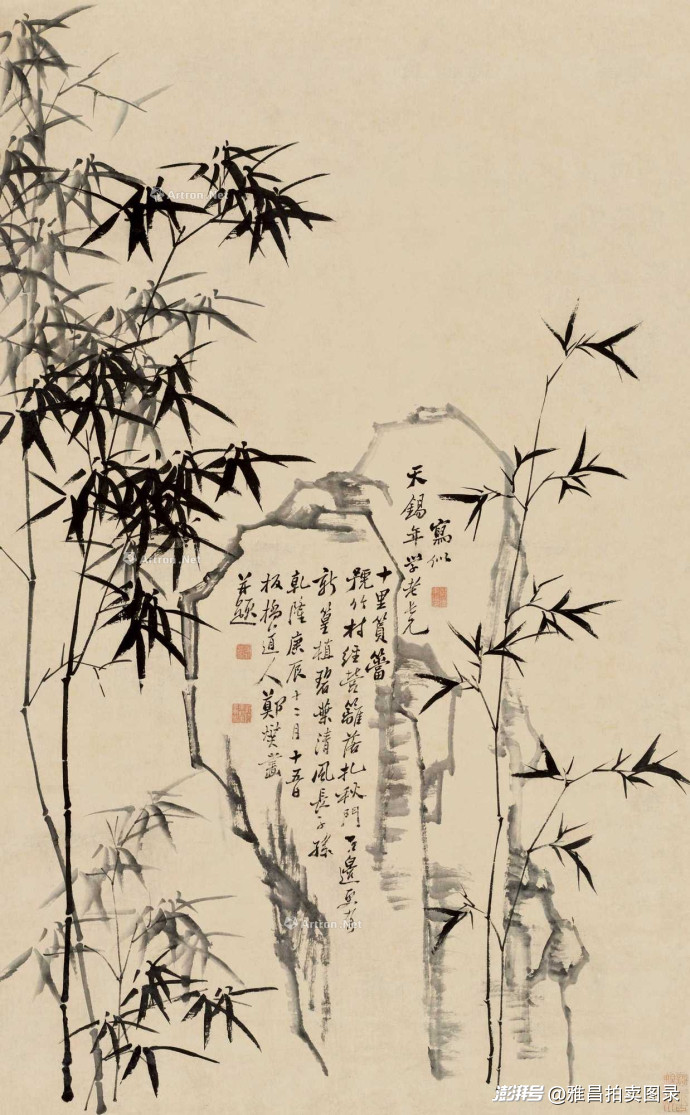 寫似
天錫年學老長兄
十里篔簹
號竹村經營籬落札門石邊更
新篁植碧葉清風長子孫
乾隆庚辰十二月十五日
板橋道人鄭燮畫
并題
Artron.Net
Artron.Net
Artron.Net
澎湃号 @雅昌拍卖图录